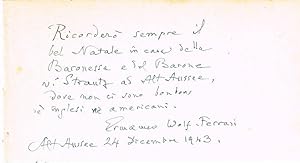 Ricorderò sempre il
bel Natale in casa della
Baronessa e del Barone
v. Strautz ad Alt Aussee,
dove non ci sono bombons
nè inglesi nè americani.
Ermanno Wolf Ferrari
Alt Aussee 24 dicembre 1943.